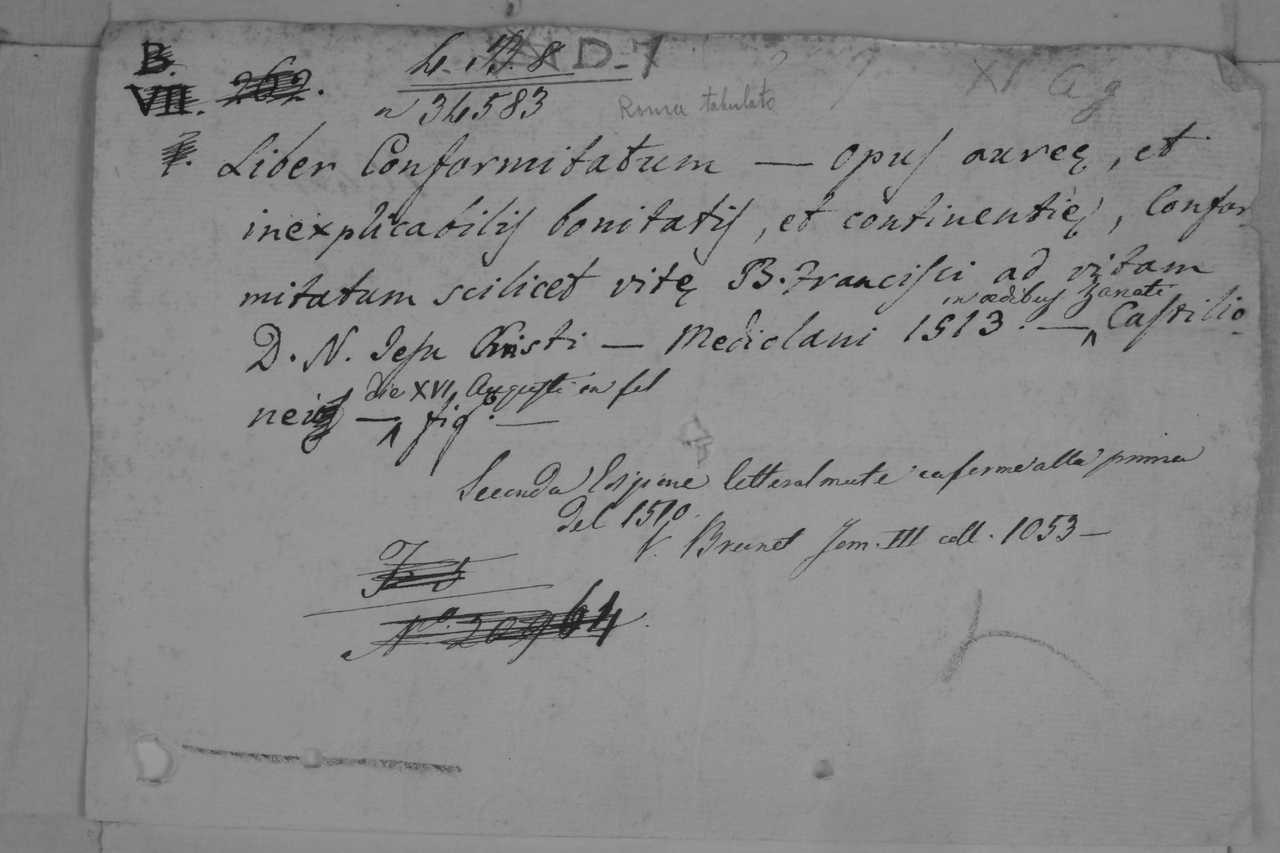 B.
VII. 262.
h. B. 8 D-7
n 34583
Roma tabulato
XI a g
7. Liber Conformitatum — Opus aureę, et
inexplicabilis bonitatis, et continentię, Confor-
mitatum scilicet vitę B. Francisci ad vitam
in ædibus Zanoti
D. N. Jesu Christi — Mediolani 1513. — ^ Castilio-
die XVI Augusti in fol
nei — ^ fig.° —
Seconda Edizione letteralmente conforme alla prima
del 1510.
V. Brunet Tom. III coll. 1053 —
N.° 20964